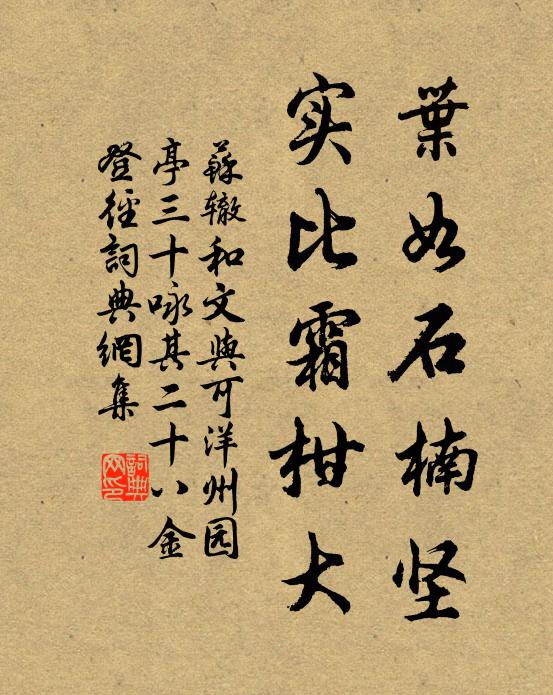 葉如石楠坚
实比霜柑大
蘇辙和文與可洋州园
亭三十咏其二十八金
登徑詞典網集
詞典
网印